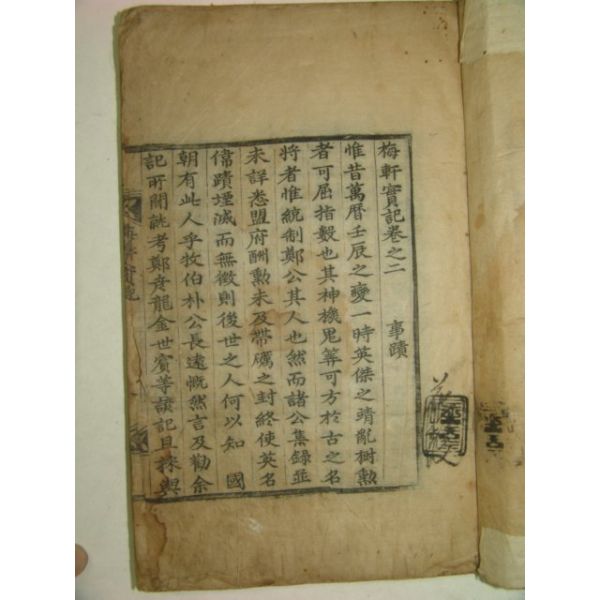 梅軒實記卷之二
事蹟
惟昔萬曆壬辰之變一時英傑之靖亂樹勲
者可屈指數也其神機鬼筭可方於古之名
將者惟統制鄭公其人也然而諸公集錄並
未詳悉盟府酬勲未及帶礪之封終使英名
偉蹟堙滅而無徵則後世之人何以知 國
朝有此人乎牧伯朴公長遠慨然言及勸余
記所關誂考鄭彦龍金世賓等讀記且採輿
梅軒實記